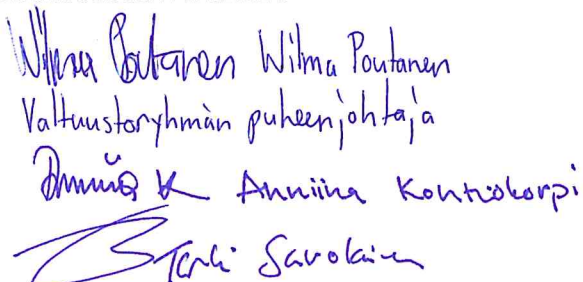 Wilma Poutanen Wilma Poutanen
Valtuustoryhmän puheenjohtaja
Anniina K Anniina Kontiokorpi
Savolainen